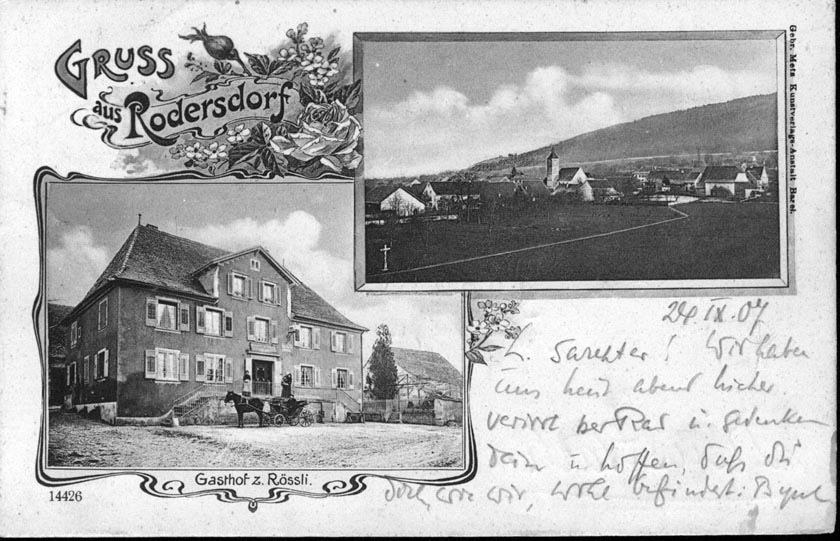 GRUSS
aus Rodersdorf
Gebr. Metz Kunstverlags-Anstalt Basel.
Gasthof z. Rössli.
14426
24 IX.07
L. ! Wir haben
uns heut abend hieher
verirrt per Rad u. gedenken
dein u hoffen, dass du
doch, wie wir, wohl befindest.